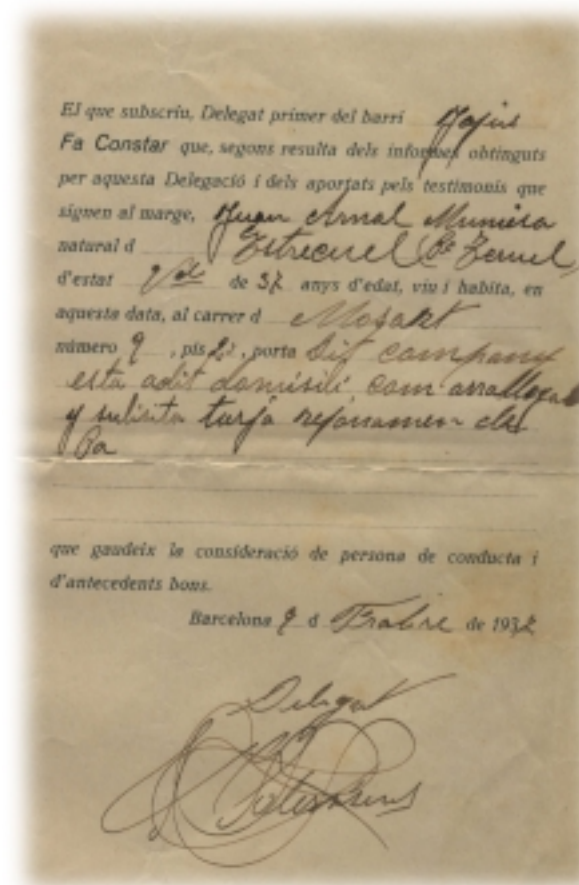 El que subscriu, Delegat primer del barri
Fa Constar que, segons resulta dels informes obtinguts
per aquesta Delegació i dels aportats pels testimonis que
signen al marge, Juan Arnal Muniesa
natural d Estrecuel Pª Teruel,
d'estat de 37 anys d'edat, viu i habita, en
aquesta data, al carrer d Mosart
número 9, pis 2º, porta Dit company
esta adit domisili com arrallogat
y sulisita tarja refonamen del
Pa
que gaudeix la consideració de persona de conducta i
d'antecedents bons.
Barcelona 9 d Frabre de 1937
Delegat